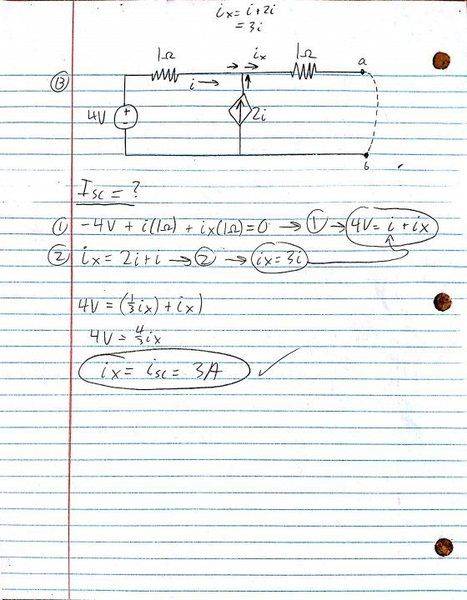 ix = i + 2i
= 3i
13
1Ω
ix
1Ω
a
i →
4V
+
-
2i
b
Isc = ?
① -4V + i(1Ω) + ix(1Ω) = 0 → ① → 4V = i + ix
② ix = 2i + i → ② → ix = 3i
4V = (1/3 ix) + ix)
4V = 4/3 ix
ix = isc = 3A ✓